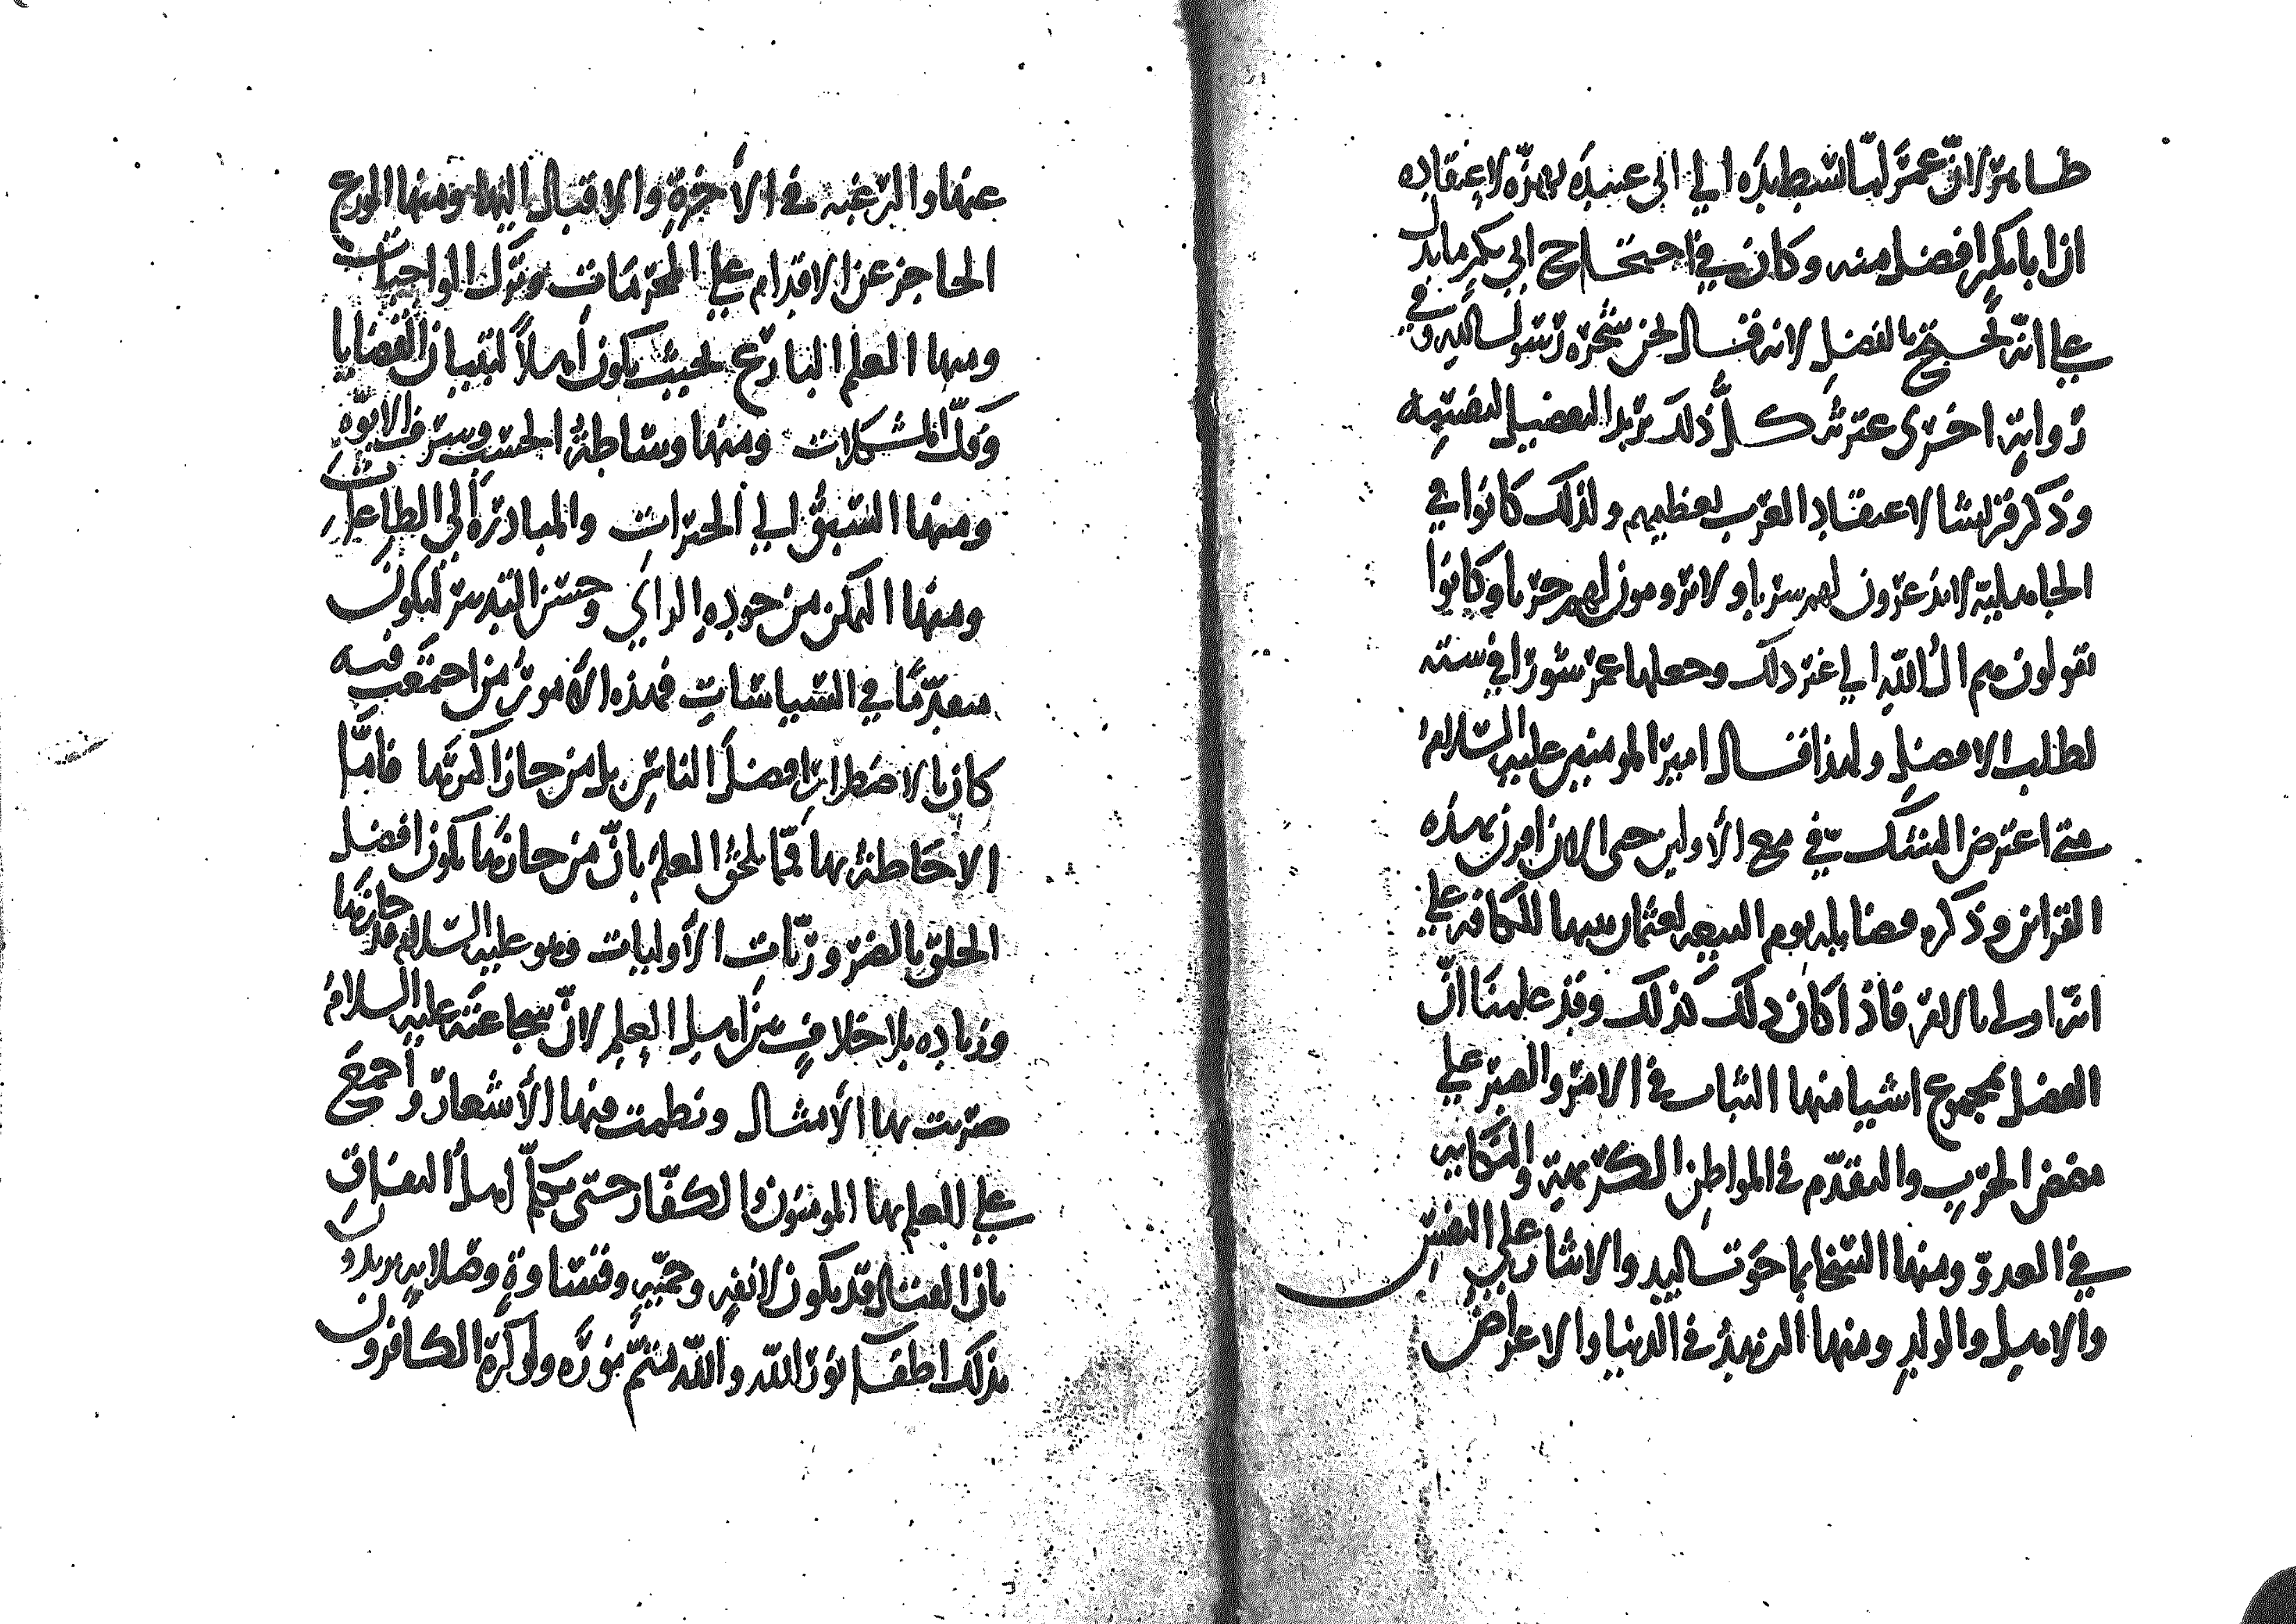 ظاهر لان عمر لما بسط يده الى ابي عبيدة نهره لاعتقاده
ان ابا بكر افضل منه وكان في احتجاج ابي بكر ما يدل
على انه احتج بالفضل لانه قال نحن شجرة رسول الله وفي
رواية اخرى عترته كل ذلك يريد التفضيل لنفسه
وذكر قريشا لاعتقاد العرب تعظيمهم ولذلك كانوا في
الجاهلية لا يذعرون لهم سربا ولا يرومون لهم حربا وكانوا
يقولون هم ال الله الى غير ذلك وجعلها عمر شورى في ستة
لطلب الافضل ولهذا قال امير المؤمنين عليه السلام
متى اعترض الشك في مع الأولين حتى الان اقرن بهذه
القرائن وذكره فضايله يوم البيعة لعثمان منبها للكافة على
انه اولى بالامر فاذا كان ذلك كذلك وقد علمنا ان
الفضل بمجموع اشيا منها الثبات في الامر والصبر على
مضض الحرب والتقدم في المواطن الكريهة والنكاية
في العدو ومنها السخا بما حوت اليد والايثار على النفس
والاهل والولد ومنها الزهد في الدنيا والاعراض
عنها والرغبة في الأخرة والاقبال اليها ومنها الورع
الحاجز عن الاقدام على المحرمات وترك الواجبات
ومنها العلم البارع بحيث يكون أهلا لتبيان القضايا
وفك المشكلات ومنها وساطة الحسب وشرف الابوة
ومنها السبق الى الخيرات والمبادرة الى الطاعات
ومنها التمكن من جودة الراي وحسن التدبير ليكون
مبرزا في السياسات فهذه الأمور من اجتمعت فيه
كان بالاضطرار افضل الناس بل من حاز اكثرها فاما
الاحاطة بها فما يلحق العلم بان من حازها يكون افضل
الخلق بالضروريات الأوليات وهو عليه السلام قد حازها
وزيادة بلا خلاف بين اهل العلم لان شجاعته عليه السلام
ضربت بها الأمثال ونظمت فيها الأشعار وأجمع
على العلم بها المؤمنون والكفار حتى تكلم اهل النفاق
بان القتال قد يكون لانفة وحمية وقساوة وصلابة يريدون
بذلك اطفا نور الله والله متم نوره ولو كره الكافرون